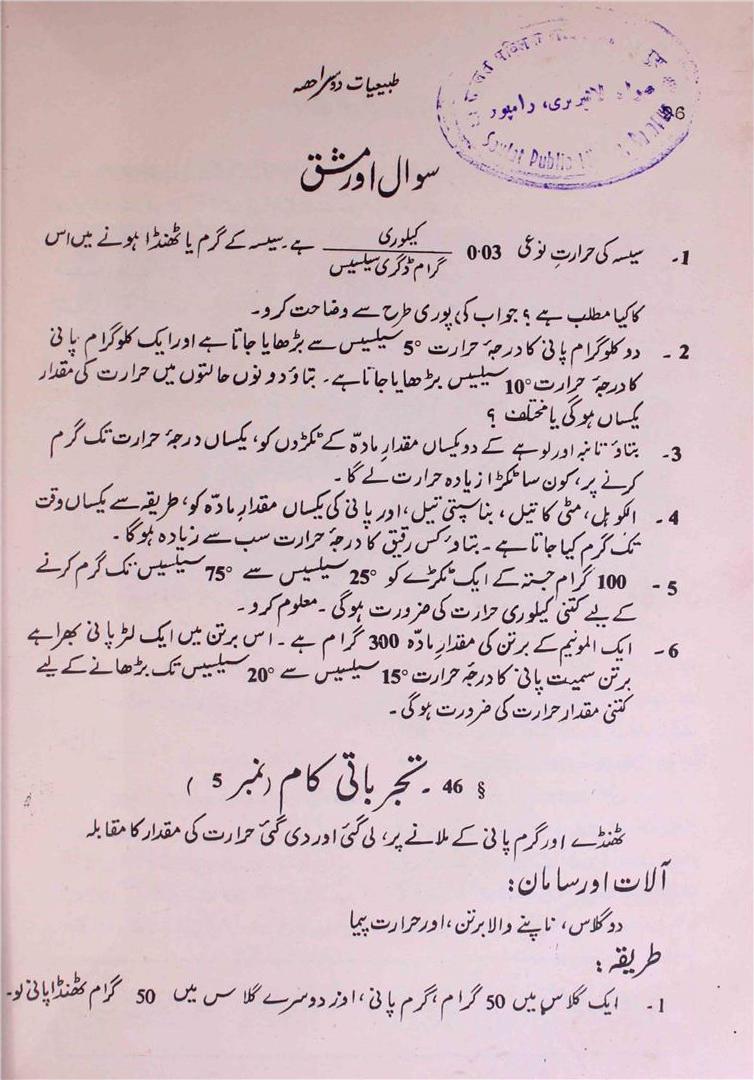 طبیعیات دوسرا حصہ
صولت لائبریری، رامپور
Saulat Public
سوال اور مشق
1۔ سیسہ کی حرارتِ نوعی 0.03 کیلوری / گرام ڈگری سیلسیس ہے۔ سیسہ کے گرم یا ٹھنڈا ہونے میں اس
کا کیا مطلب ہے؟ جواب کی پوری طرح سے وضاحت کرو۔
2۔ دو کلو گرام پانی کا درجۂ حرارت 5° سیلسیس سے بڑھایا جاتا ہے اور ایک کلو گرام پانی
کا درجۂ حرارت 10° سیلسیس بڑھایا جاتا ہے۔ بتاؤ دونوں حالتوں میں حرارت کی مقدار
یکساں ہوگی یا مختلف؟
3۔ بتاؤ تانبہ اور لوہے کے دو یکساں مقدارِ مادّہ کے ٹکڑوں کو، یکساں درجۂ حرارت تک گرم
کرنے پر، کون سا ٹکڑا زیادہ حرارت لے گا۔
4۔ الکوہل، مٹی کا تیل، بناسپتی تیل، اور پانی کی یکساں مقدارِ مادّہ کو، طریقہ سے یکساں وقت
تک گرم کیا جاتا ہے۔ بتاؤ کس رقیق کا درجۂ حرارت سب سے زیادہ ہوگا۔
5۔ 100 گرام جستہ کے ایک ٹکڑے کو 25° سیلسیس سے 75° سیلسیس تک گرم کرنے
کے لیے کتنی کیلوری حرارت کی ضرورت ہوگی۔ معلوم کرو۔
6۔ ایک المونیم کے برتن کی مقدارِ مادّہ 300 گرام ہے۔ اس برتن میں ایک لٹر پانی بھرا ہے
برتن سمیت پانی کا درجۂ حرارت 15° سیلسیس سے 20° سیلسیس تک بڑھانے کے لیے
کتنی مقدار حرارت کی ضرورت ہوگی۔
§ 46۔ تجرباتی کام (نمبر 5)
ٹھنڈے اور گرم پانی کے ملانے پر، لی گئی اور دی گئی حرارت کی مقدار کا مقابلہ
آلات اور سامان:
دو گلاس، ناپنے والا برتن، اور حرارت پیما
طریقہ:
1۔ ایک گلاس میں 50 گرام، گرم پانی، اور دوسرے گلاس میں 50 گرام ٹھنڈا پانی لو۔